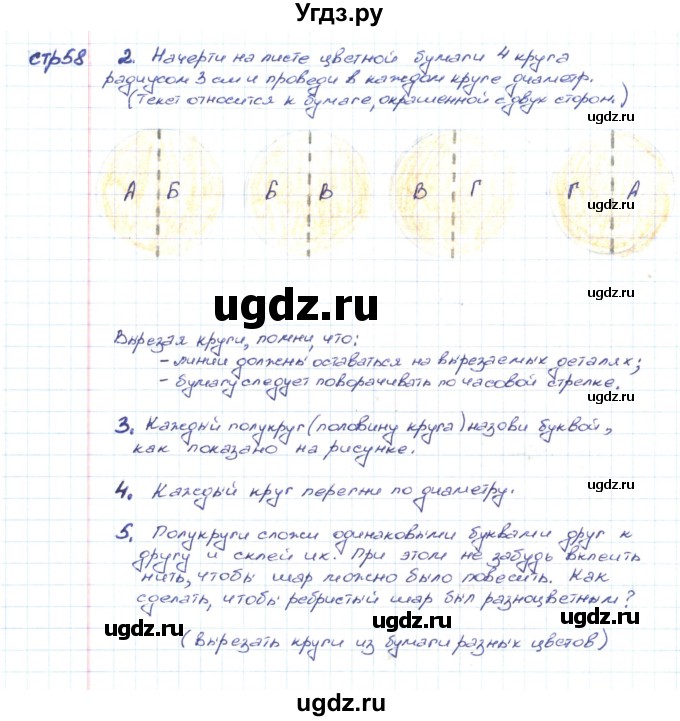 Угдз.ру
стр58 2. Начерти на листе цветной бумаги 4 круга
радиусом 3 см и проведи в каждом круге диаметр.
(Текст относится к бумаге, окрашенной с двух сторон.)
ugdz.ru
ugdz.ru
А Б Б В В Г Г А
ugdz.ru
ugdz.ru
ugdz.ru
Вырезая круги, помни, что:
- линии должны оставаться на вырезаемых деталях;
- бумагу следует поворачивать по часовой стрелке.
ugdz.ru
3. Каждый полукруг (половину круга) назови буквой,
как показано на рисунке.
4. Каждый круг перегни по диаметру.
ugdz.ru
5. Полукруги сложи одинаковыми буквами друг к
другу и склей их. При этом не забудь вклеить
нить, чтобы шар можно было повесить. Как
сделать, чтобы ребристый шар был разноцветным?
ugdz.ru
ugdz.ru
ugdz.ru
(Вырезать круги из бумаги разных цветов)
ugdz.ru